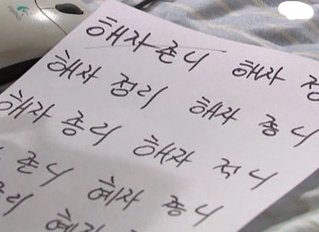 해자 존니 해자 정
해자 정리 해자 종니
해자 종리 해자 적니
존니 혜자 종니
혜자